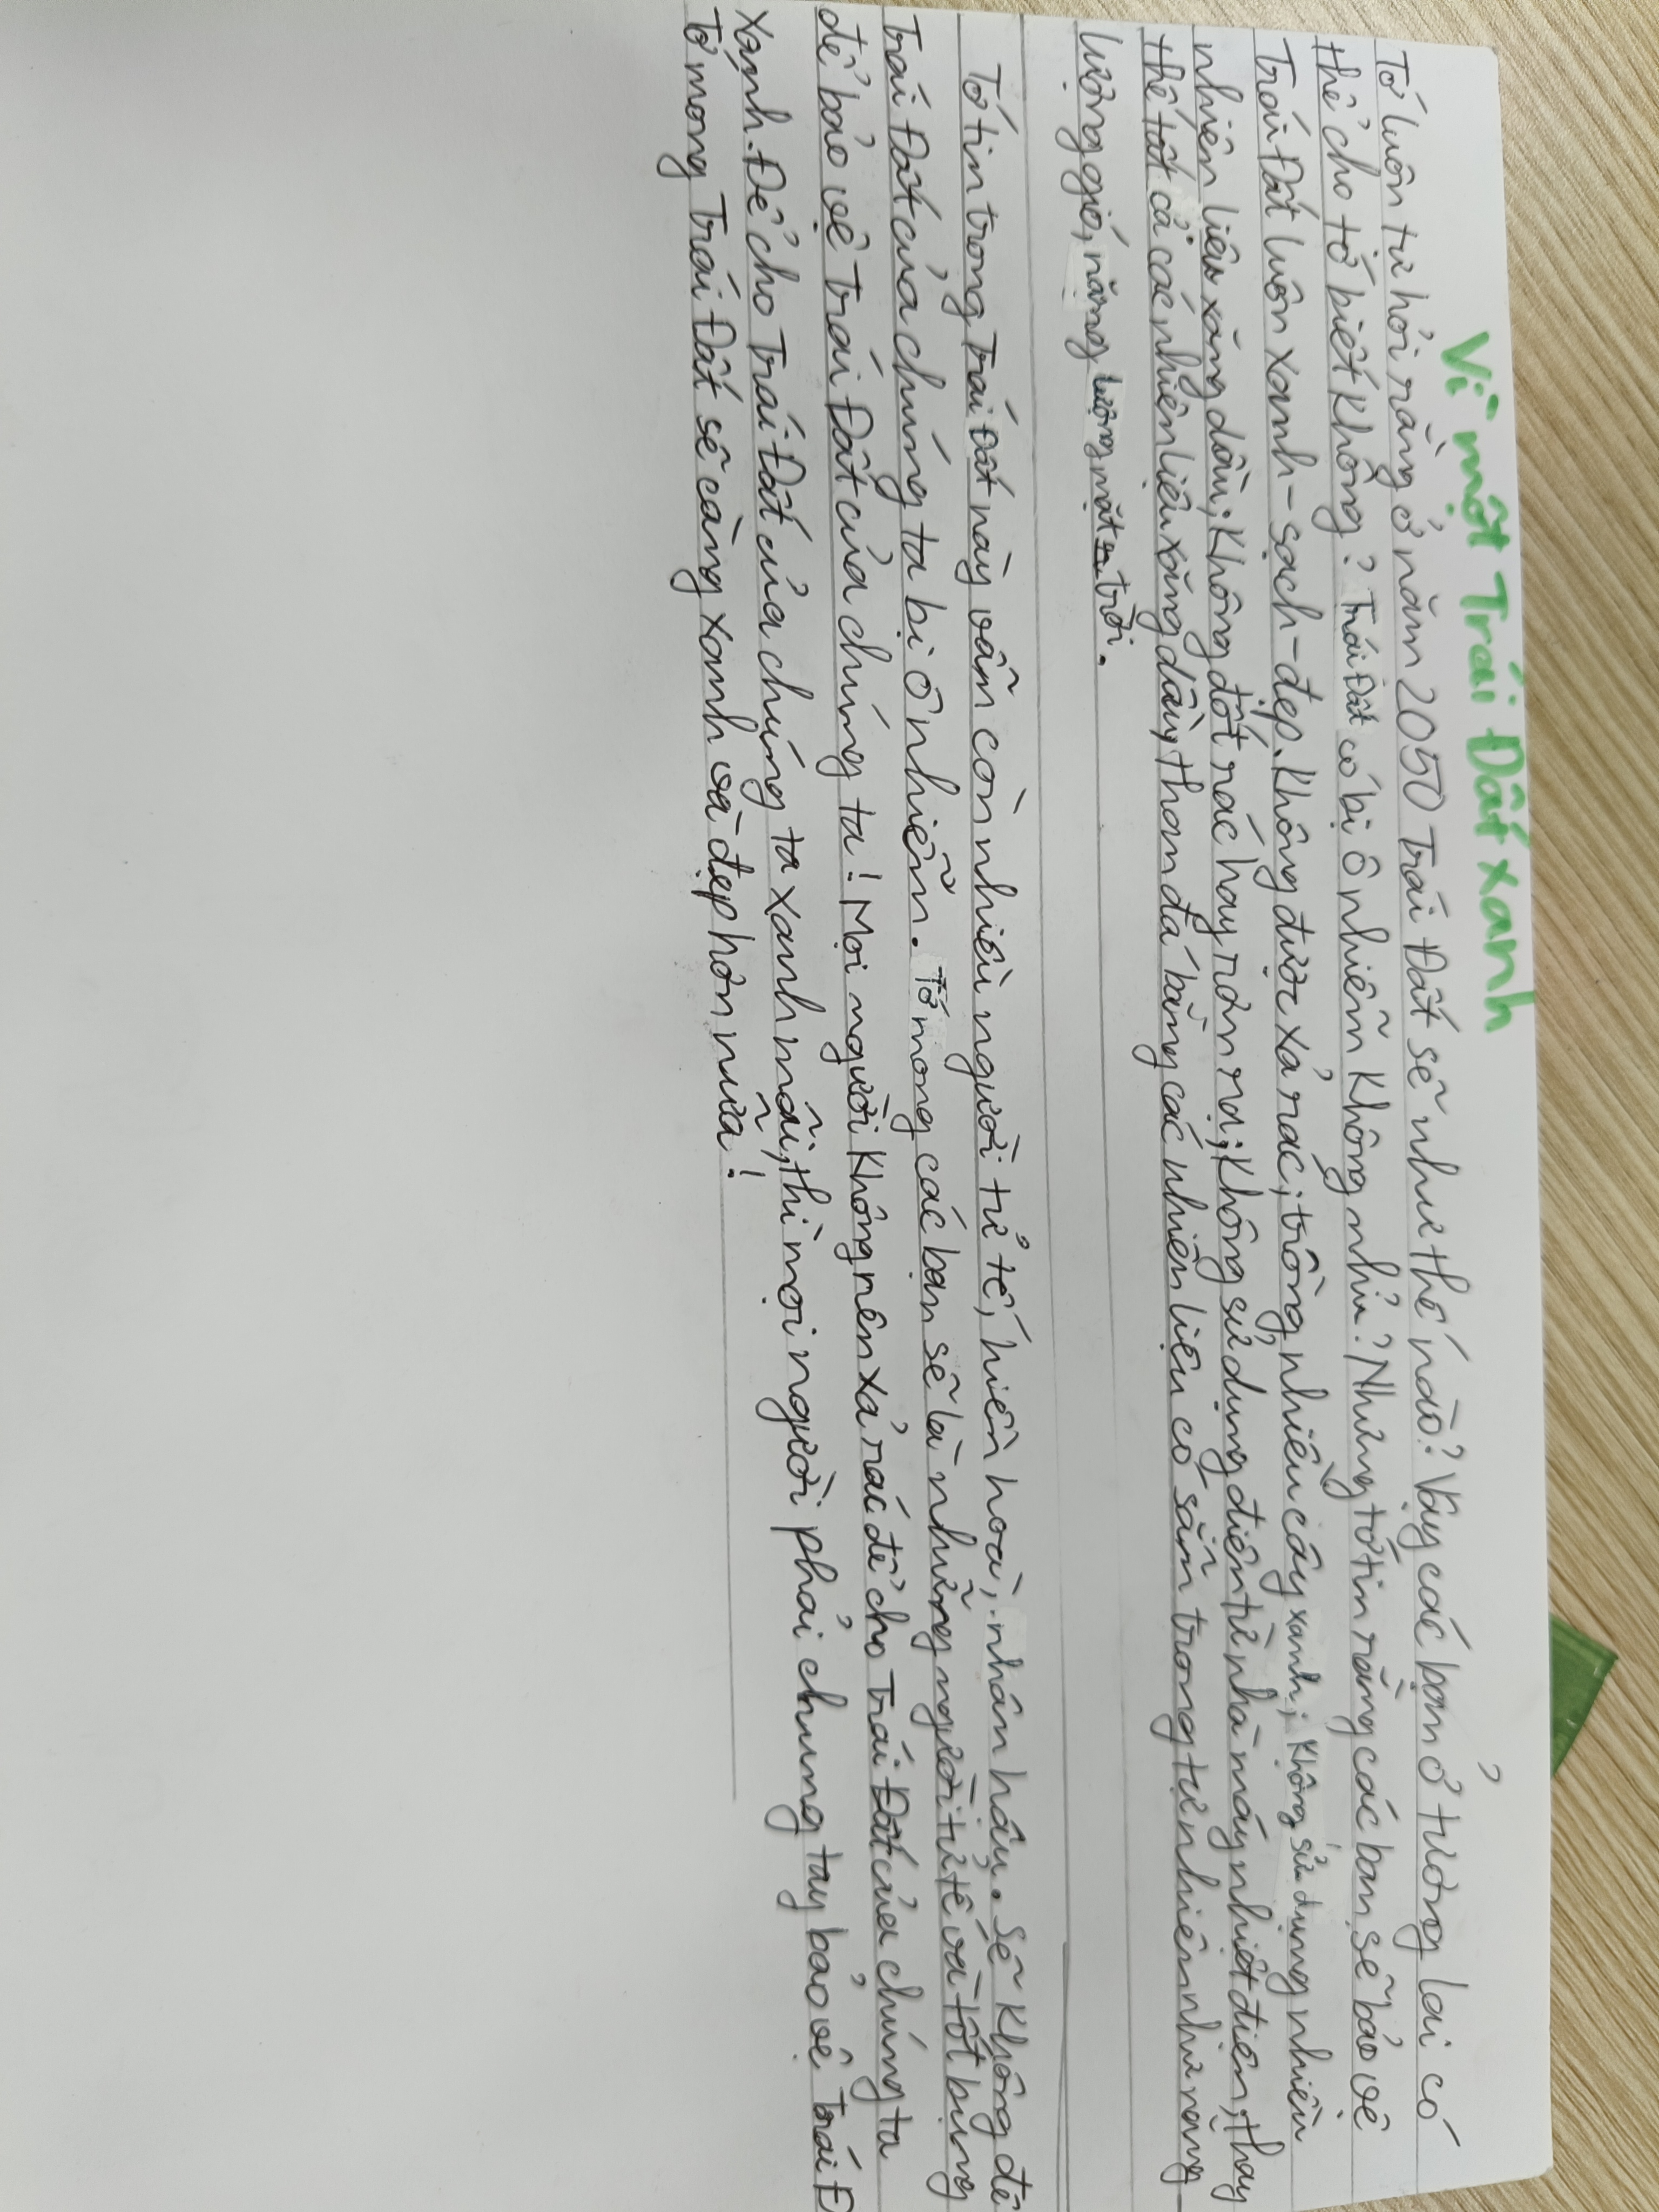 Vì một Trái Đất xanh
Tớ luôn tự hỏi rằng ở năm 2050 Trái Đất sẽ như thế nào? Vậy các bạn ở tương lai có
thể cho tớ biết không? Trái Đất có bị ô nhiễm không nhỉ? Nhưng tớ tin rằng các bạn sẽ bảo vệ
Trái Đất luôn xanh-sạch-đẹp. Không được xả rác; trồng nhiều cây xanh; không sử dụng nhiều
nhiên liệu xăng dầu; không đốt rác hay rơm rạ; không sử dụng điện từ nhà máy nhiệt điện; thay
thế tất cả các nhiên liệu xăng dầu, than đá bằng các nhiên liệu có sẵn trong tự nhiên như năng
lượng gió, năng lượng mặt trời.
Tớ tin trong Trái Đất này vẫn còn nhiều người tử tế, hiền hoà, nhân hậu. Sẽ không để
Trái Đất của chúng ta bị ô nhiễm. Tớ mong các bạn sẽ là những người tử tế và tốt bụng
để bảo vệ Trái Đất của chúng ta! Mọi người không nên xả rác để cho Trái Đất của chúng ta
xanh. Để cho Trái Đất của chúng ta xanh mãi, thì mọi người phải chung tay bảo vệ Trái Đ
Tớ mong Trái Đất sẽ càng xanh và đẹp hơn nữa!